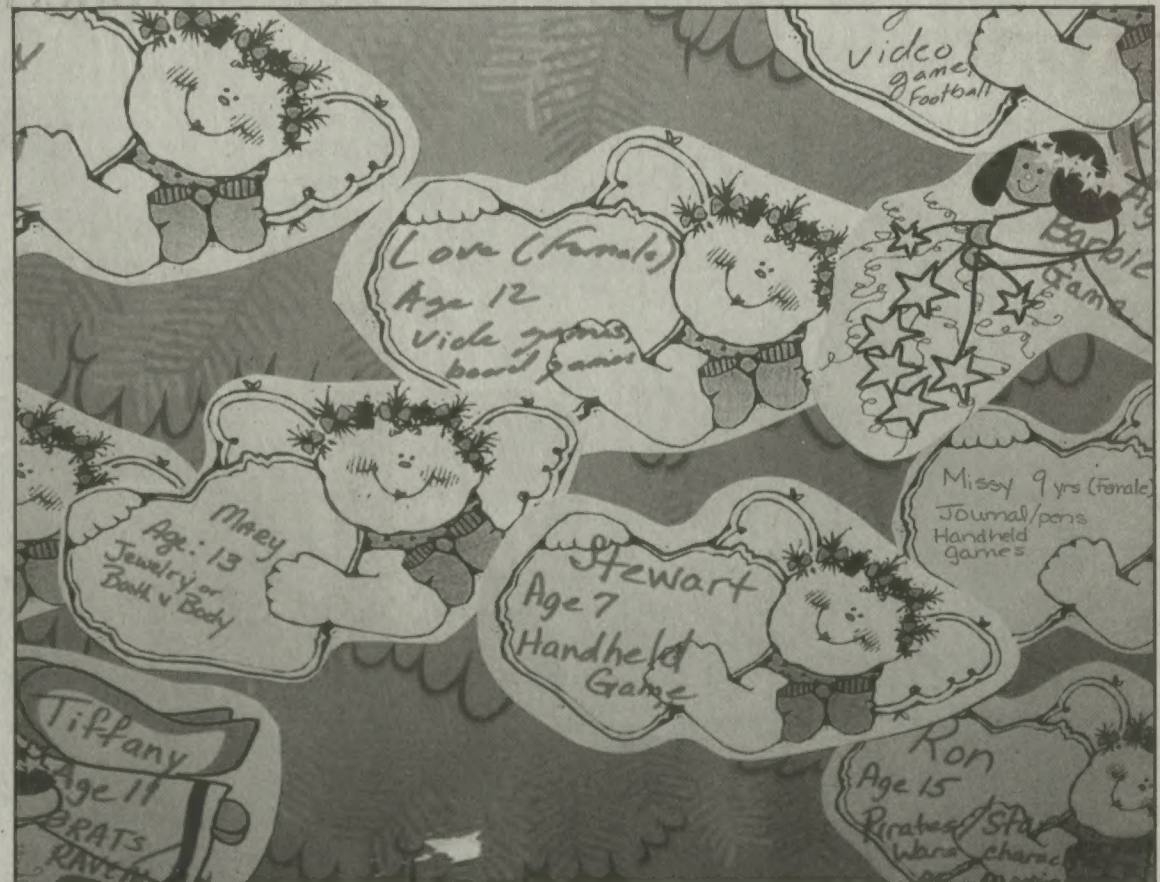 video
game,
Football
Barbie
Game
Love (Female)
Age 12
vide games,
board games
MARY
Age: 13
Jewelry or
Bath & Body
Stewart
Age 7
Handheld
Game
Missy 9 yrs (Female)
Journal/pens
Handheld
games
Tiffany
Age 11
BRATS
Ron
Age 15
Pirates/Star
Wars